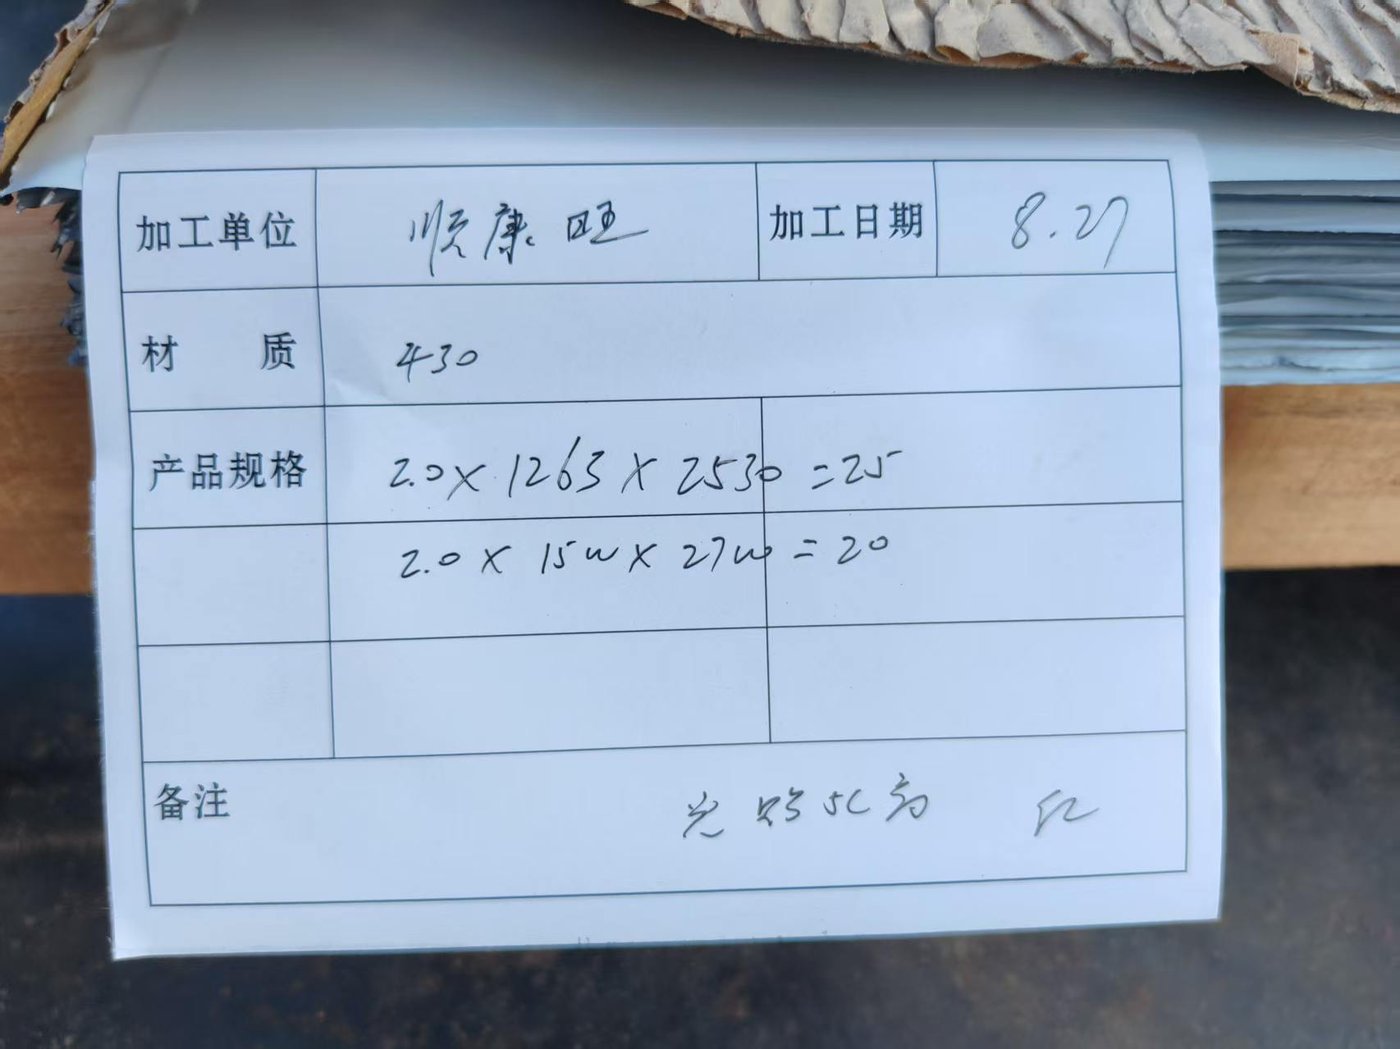 加工单位 顺康旺 加工日期 8.27
材质 430
产品规格 2.0×1263×2530=25
2.0×1500×2700=20
备注 光 5C